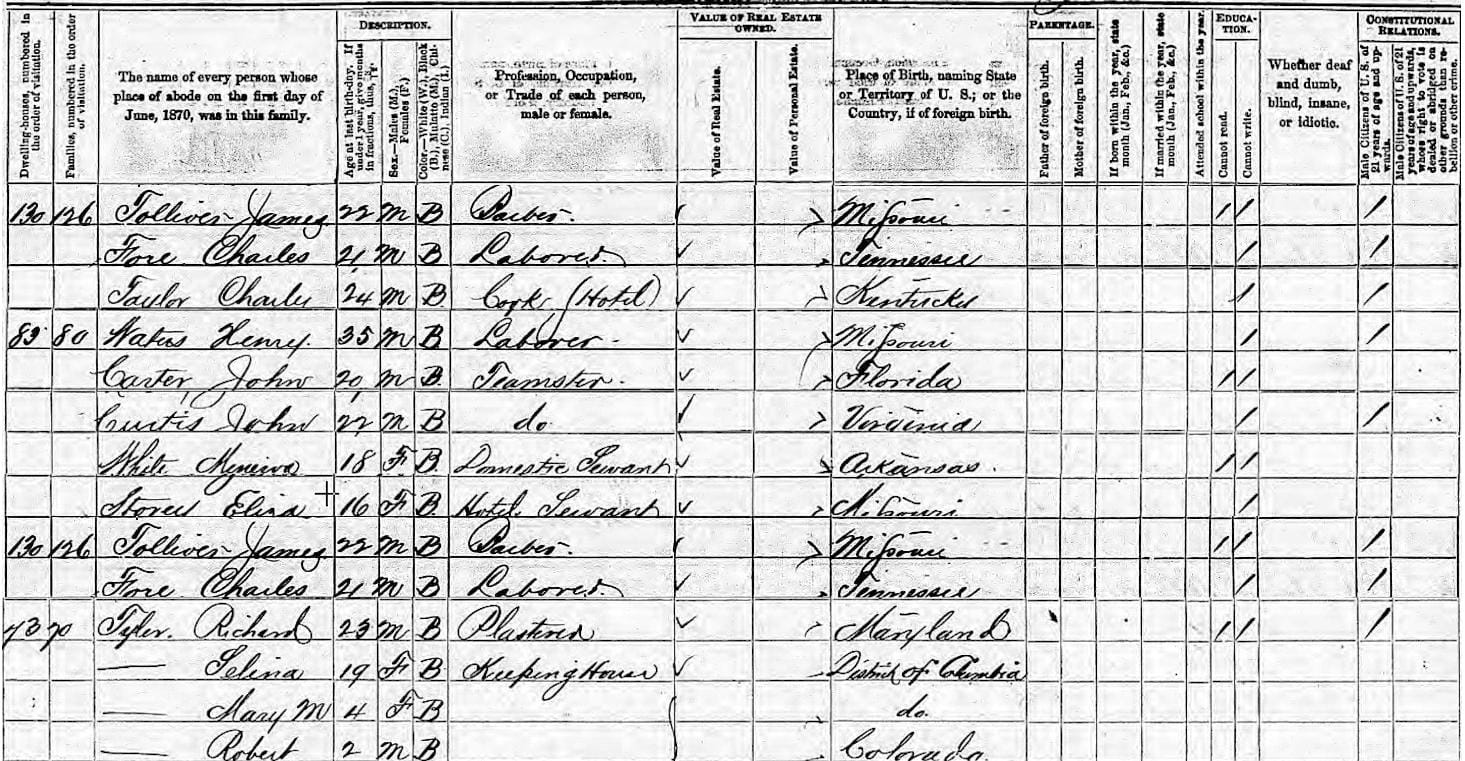 DESCRIPTION. VALUE OF REAL ESTATE OWNED. PARENTAGE. EDUCATION. CONSTITUTIONAL RELATIONS.
Dwelling-houses, numbered in the order of visitation.
Families, numbered in the order of visitation.
The name of every person whose place of abode on the first day of June, 1870, was in this family.
Age at last birth-day. If under 1 year, give months in fractions, thus,
Sex.—Males (M.), Females (F.)
Color.—White (W.), Black (B.), Mulatto (M.), Chinese (C.), Indian (I.)
Profession, Occupation, or Trade of each person, male or female.
Value of Real Estate.
Value of Personal Estate.
Place of Birth, naming State or Territory of U. S.; or the Country, if of foreign birth.
Father of foreign birth.
Mother of foreign birth.
If born within the year, state month (Jan., Feb., &c.)
If married within the year, state month (Jan., Feb., &c.)
Attended school within the year.
Cannot read.
Cannot write.
Whether deaf and dumb, blind, insane, or idiotic.
Male Citizens of U. S. of 21 years of age and upwards.
Male Citizens of U. S. of 21 years of age and upwards, whose right to vote is denied or abridged on other grounds than rebellion or other crime.
130 126 Tolliver James 22 M B Barber Missouri / / /
Fore Charles 21 M B Laborer Tennessee / /
Taylor Charles 24 M B Cook (Hotel) Kentucky / /
80 Waters Henry 35 M B Laborer Missouri / /
Carter John 20 M B Teamster Florida / /
Curtis John 22 M B do Virginia / /
White Minerva 18 F B Domestic Servant Arkansas / /
Eliza 16 F B Hotel Servant Missouri /
130 126 Tolliver James 22 M B Barber Missouri / / /
Fore Charles 21 M B Laborer Tennessee / /
73 70 Tyler Richard 23 M B Plasterer Maryland / / /
— Selina 19 F B Keeping House District of Columbia
— Mary M 4 F B do.
— Robert 2 M B Colorado